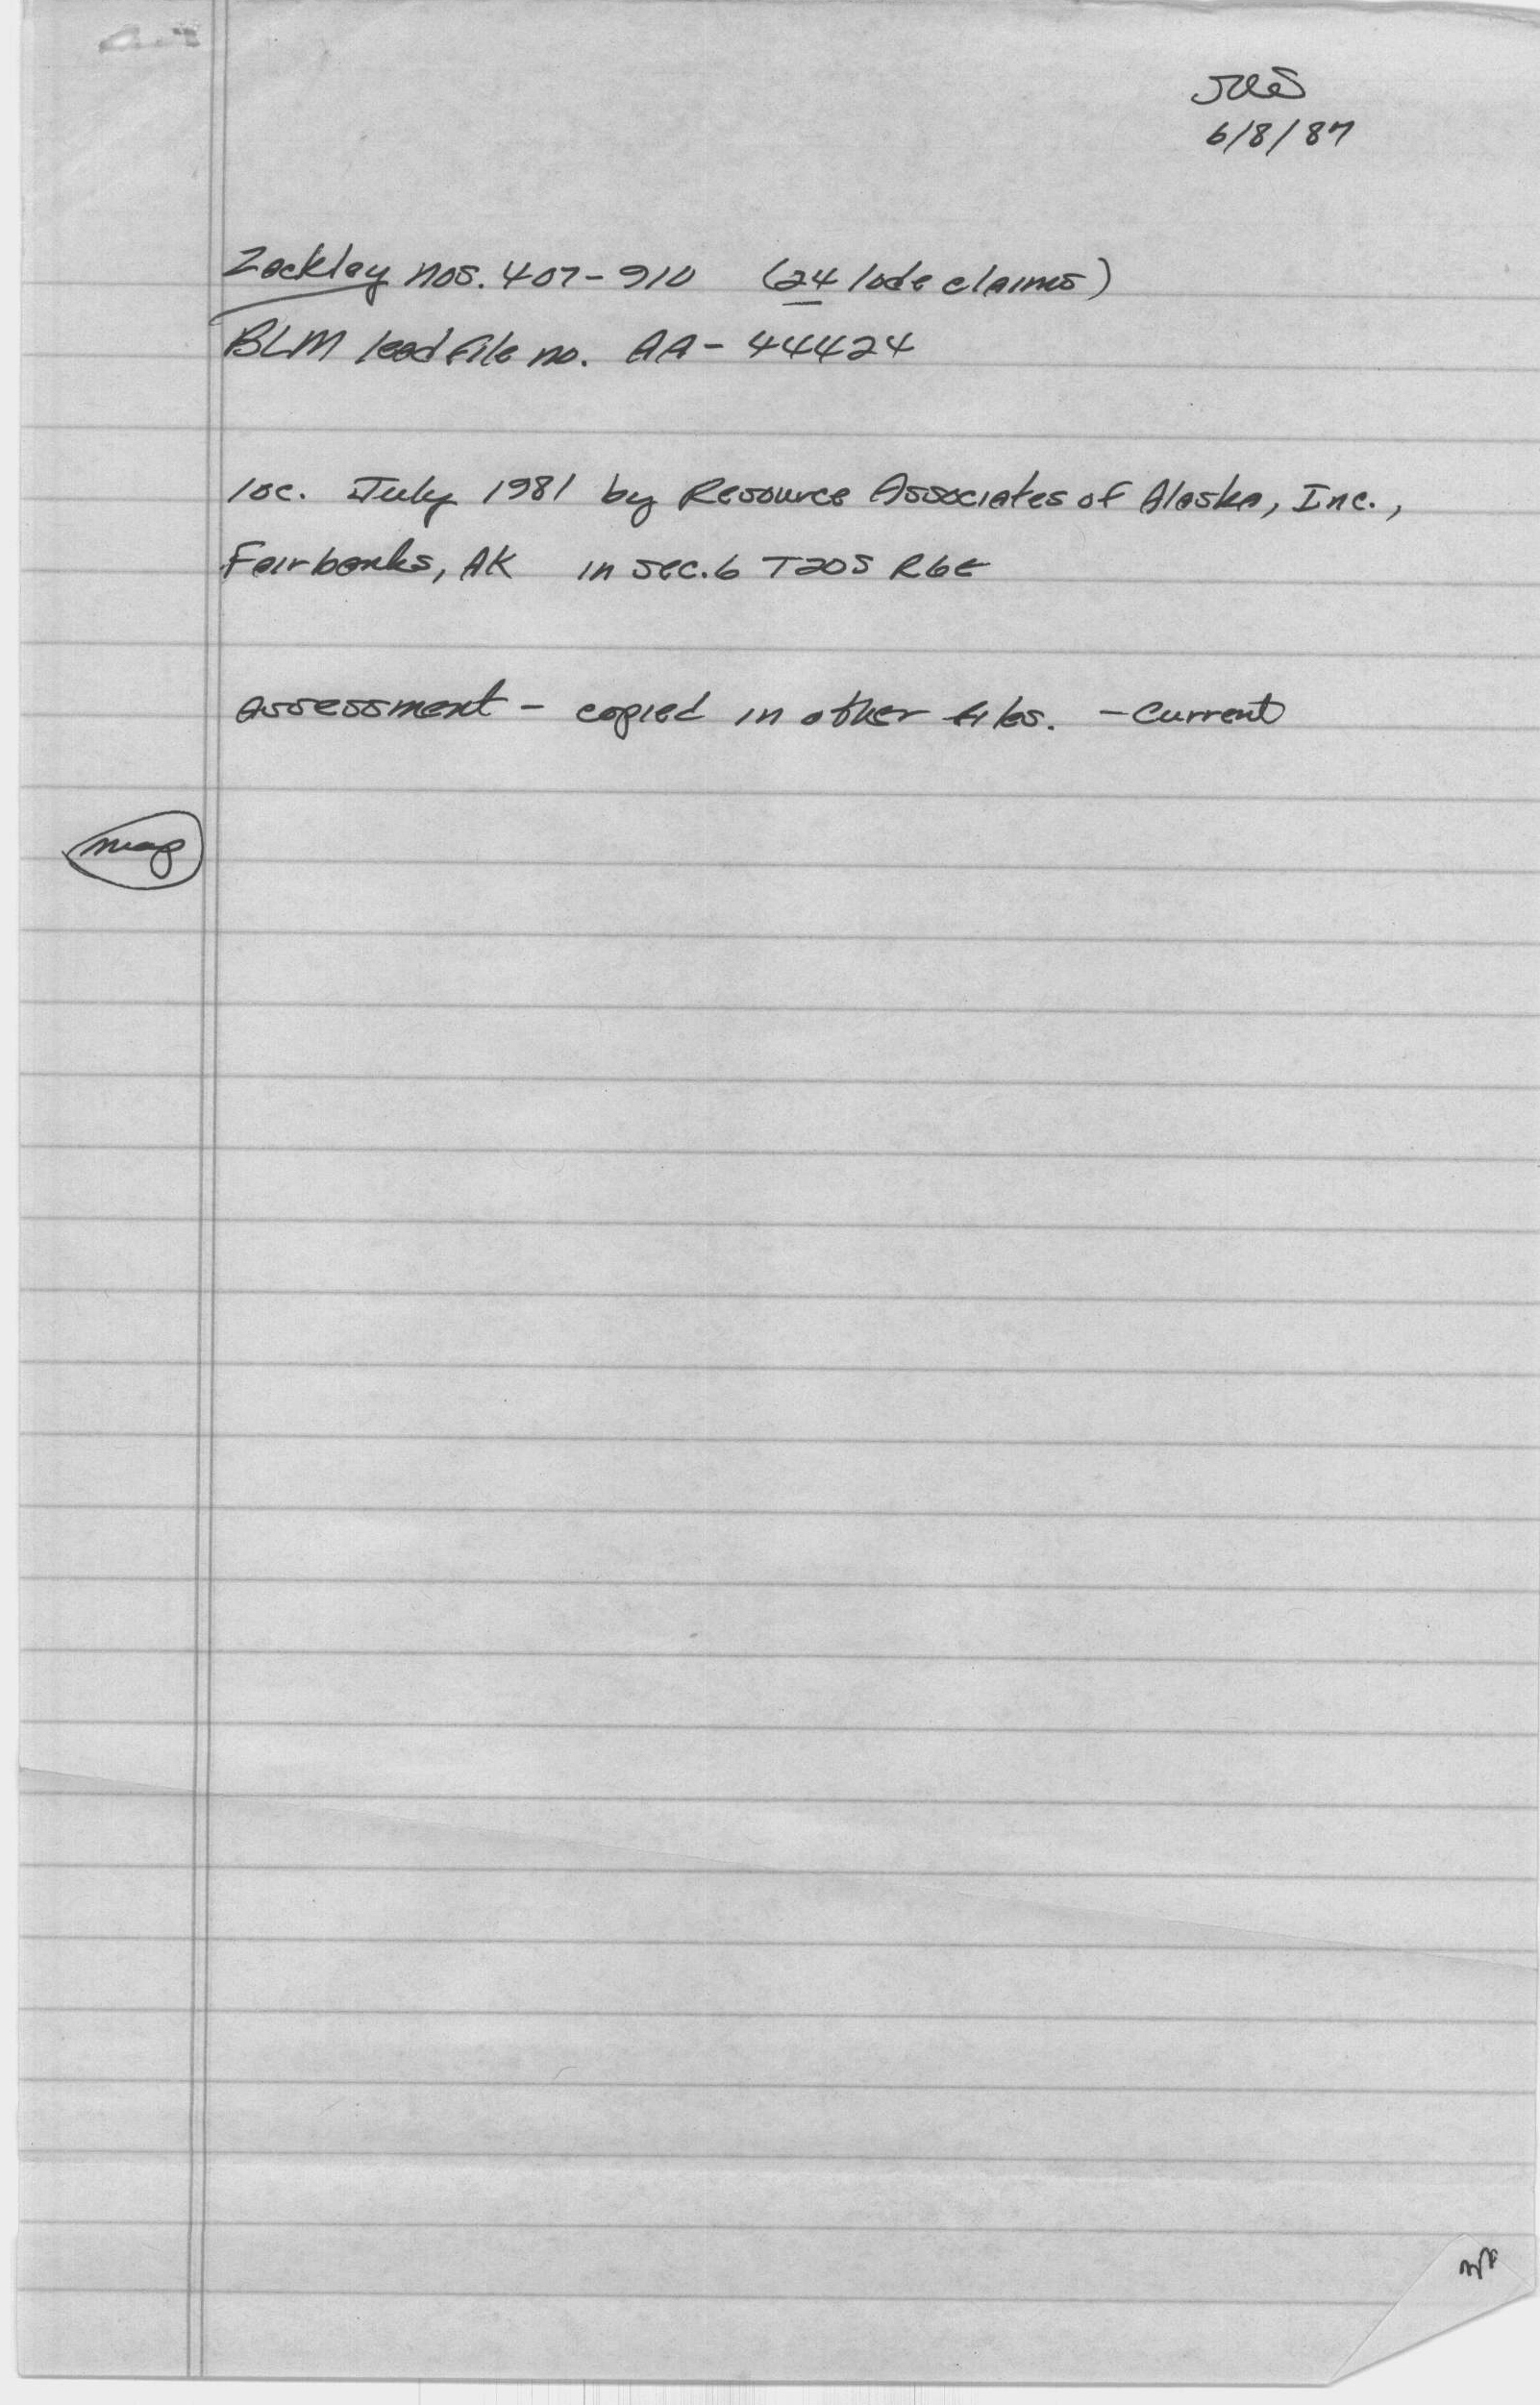 6/8/87
Zackley nos. 407-910 (24 lode claims)
BLM lead file no. AA-44424
loc. July 1981 by Resource Associates of Alaska, Inc.,
Fairbanks, AK in sec. 6 T20S R6E
assessment - copied in other files. - current
map